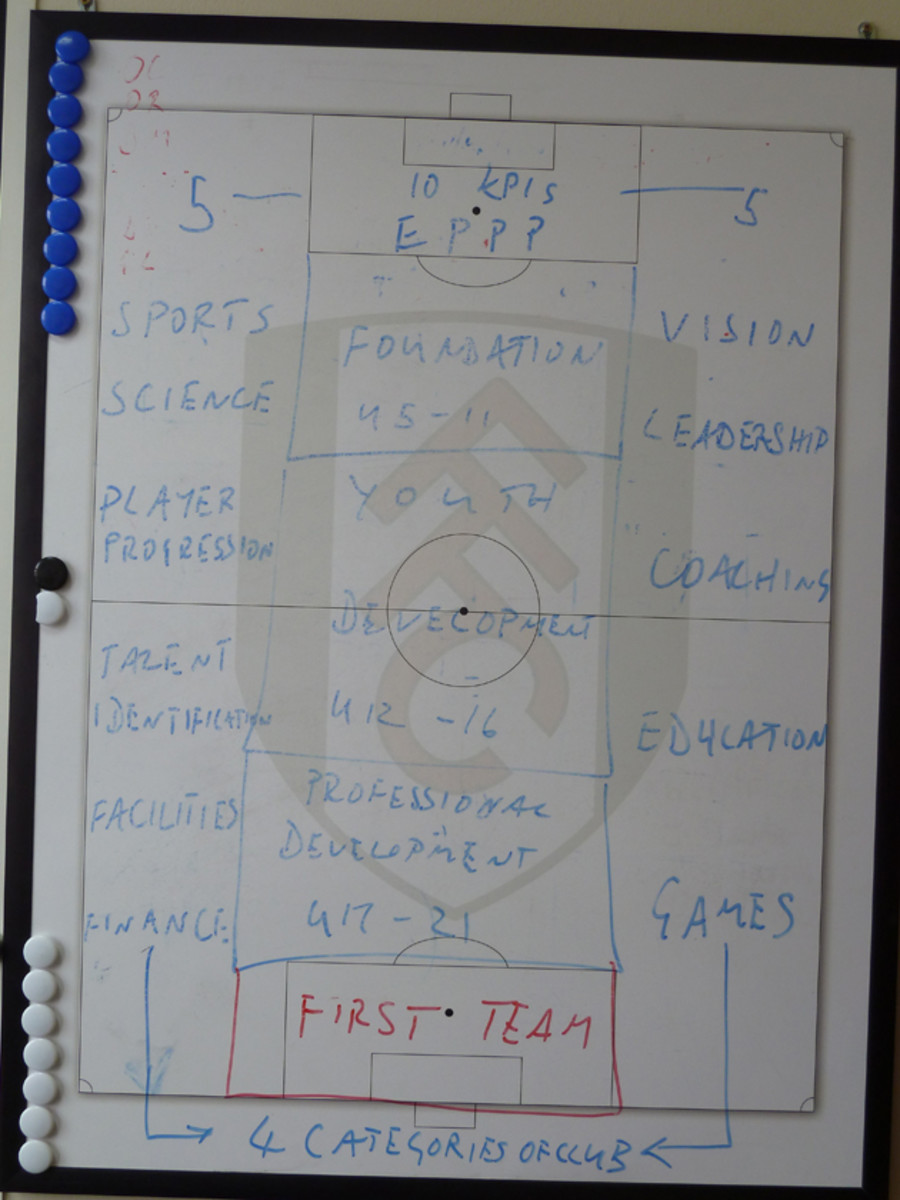 10 KPIs
5 — — 5
EPPP
SPORTS
SCIENCE
PLAYER
PROGRESSION
TALENT
IDENTIFICATION
FACILITIES
FINANCE
FOUNDATION
U5-11
YOUTH
DEVELOPMENT
U12-16
PROFESSIONAL
DEVELOPMENT
U17-21
FIRST TEAM
VISION
LEADERSHIP
COACHING
EDUCATION
GAMES
4 CATEGORIES OF CLUB